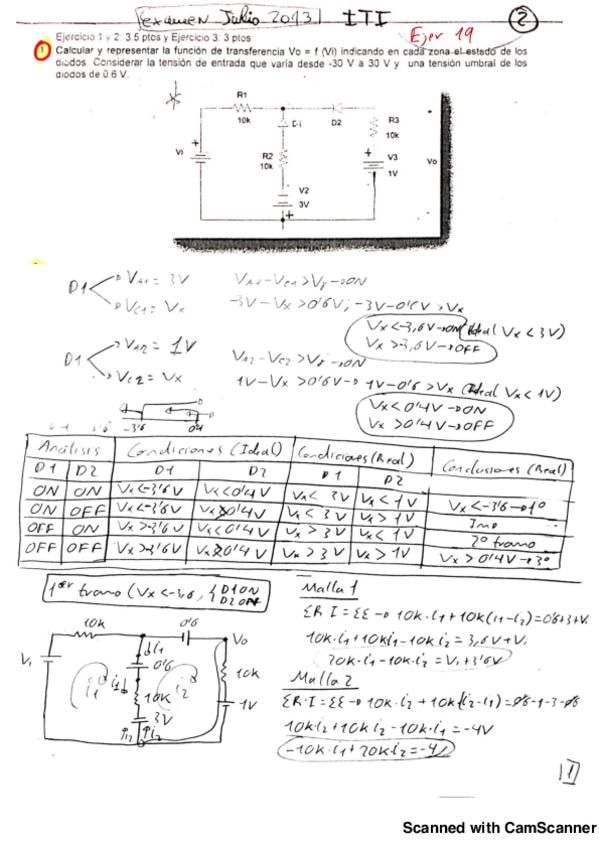 examen Julio 2013 ITI
2
Ejer 19
Ejercicio 1 y 2: 3.5 ptos y Ejercicio 3: 3 ptos
1 Calcular y representar la función de transferencia Vo = f (Vi) indicando en cada zona el estado de los
diodos. Considerar la tensión de entrada que varía desde -30 V a 30 V y una tensión umbral de los
diodos de 0.6 V.
R1
10k
D1
D2
R3
10k
R2
10k
Vi
V3
1V
Vo
V2
3V
D1
VA1 = 3V
VC1 = Vx
VA1-VC1>Vγ→ON
-3V-Vx>0'6V; -3V-0'6V>Vx
Vx<-3,6V→ON (Ideal Vx<3V)
Vx>-3,6V→OFF
D1
VA2 = 1V
VC2 = Vx
VA2-VC2>Vγ→ON
1V-Vx>0'6V→ 1V-0'6>Vx (Ideal Vx<1V)
Vx<0'4V→ON
Vx>0'4V→OFF
-3'6 0'4
Análisis Condiciones (Ideal) Condiciones (Real) Conclusiones (Real)
D1 D2 D1 D2 D1 D2
ON ON Vx<-3'6V Vx<0'4V Vx<3V Vx<1V Vx<-3'6→1º
ON OFF Vx<-3'6V Vx>0'4V Vx<3V Vx>1V Imp
OFF ON Vx>-3'6V Vx<0'4V Vx>3V Vx<1V 2º tramo
OFF OFF Vx>-3'6V Vx>0'4V Vx>3V Vx>1V Vx>0'4V→3º
1er tramo (Vx<-3,6, { D1 ON
D2 OFF
Malla 1
ΣR·I=ΣE→ 10k·i1+10k(i1-i2)=0'6+3+Vi
10k·i1+10ki1-10k·i2=3,6V+Vi
20k·i1-10k·i2=Vi+3'6V
Malla 2
ΣR·I=ΣE→ 10k·i2+10k(i2-i1)=0'6-1-3-0'6
10ki2+10ki2-10k·i1=-4V
-10k·i1+20ki2=-4V
10k
0'6
Vo
Vi
0'6
10k
10k
3V
1V
1
Scanned with CamScanner